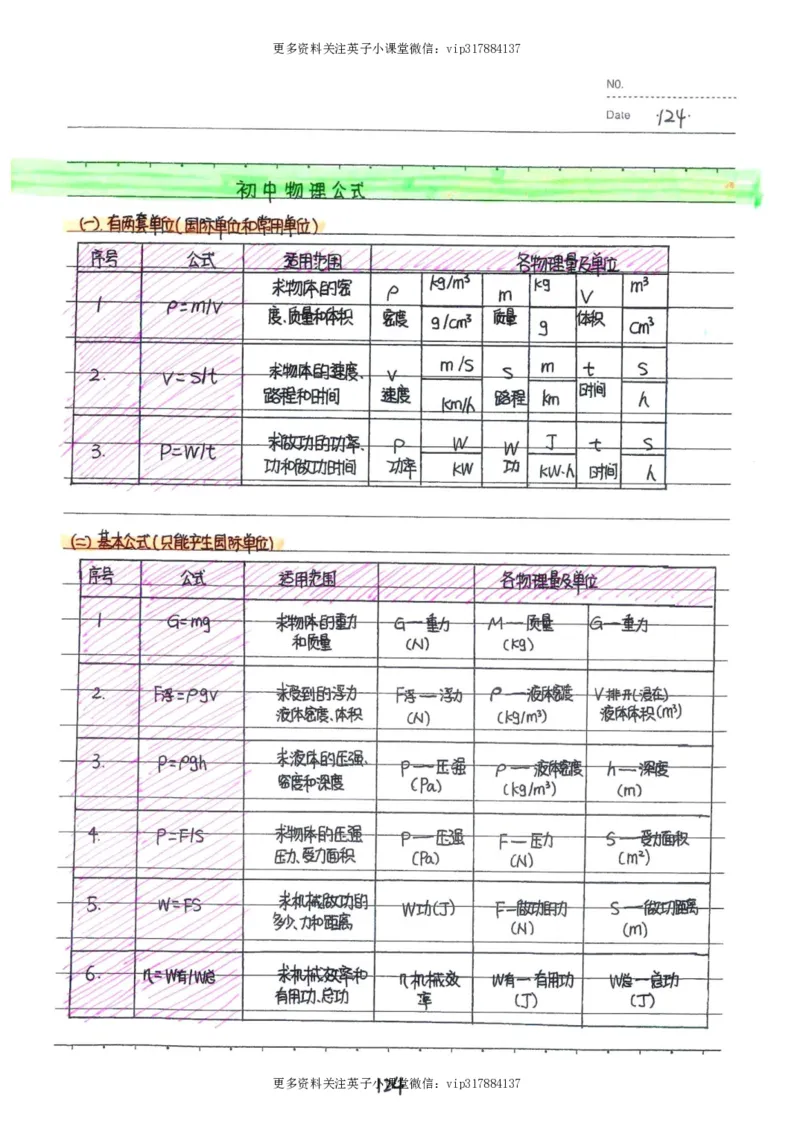 更多资料关注英子小课堂微信：vip317884137
NO.
Date ·124·
初中物理公式
(一) 有两套单位(国际单位和常用单位)
序号 公式 适用范围 各物理量及单位
1 ρ=m/V 求物体的密度、质量和体积 ρ 密度 kg/m³ g/cm³ m 质量 kg g V 体积 m³ cm³
2. V=S/t 求物体的速度、路程和时间 V 速度 m/s km/h S 路程 m km t 时间 S h
3. P=W/t 求做功的功率、功和做功时间 P 功率 W kW W 功 J kW·h t 时间 S h
(二) 基本公式(只能产生国际单位)
序号 公式 适用范围 各物理量及单位
1 G=mg 求物体的重力和质量 G—重力 (N) M—质量 (kg) G—重力
2. F浮=ρgv 求受到的浮力液体密度、体积 F浮—浮力 (N) ρ—液体密度 (kg/m³) V排开(浸在)液体体积(m³)
3. P=ρgh 求液体的压强、密度和深度 P—压强 (Pa) ρ—液体密度 (kg/m³) h—深度 (m)
4. P=F/S 求物体的压强压力、受力面积 P—压强 (Pa) F—压力 (N) S—受力面积 (m²)
5. W=FS 求机械做功的多少、力和距离 W功(J) F—做功的力 (N) S—做功距离 (m)
6. η=W有/W总 求机械效率和有用功、总功 η机械效率 W有—有用功 (J) W总—总功 (J)
更多资料关注英子小课堂微信：vip317884137
124